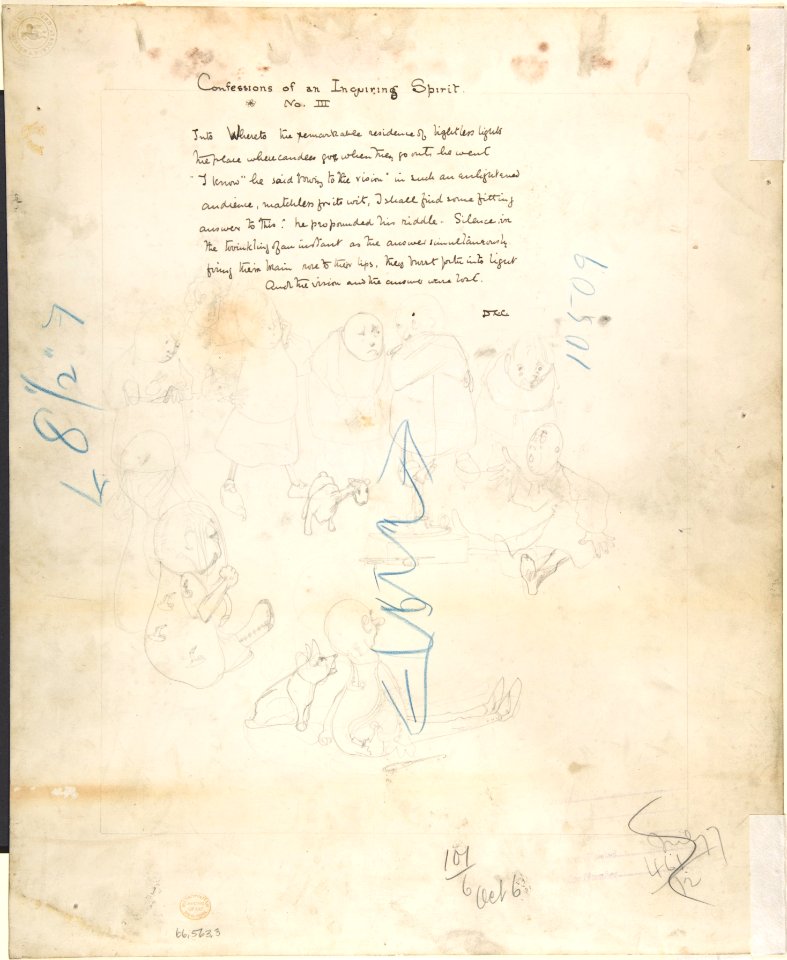 Confessions of an Inquiring Spirit.
* No. III
Into Whereto the remarkable residence of lightless lights
the place where candles go when they go out, he went
"I know" he said bowing to the vision "in such an enlightened
audience, matchless for its wit, I shall find some fitting
answer to this": he propounded his riddle. Silence, in
the twinkling of an instant as the answer simultaneously
firing their brain rose to their lips, they burst forth into light
And the vision and the answer were lost.
60501
8 1/2"
101
6
Oct 6
46
12
66.563.3